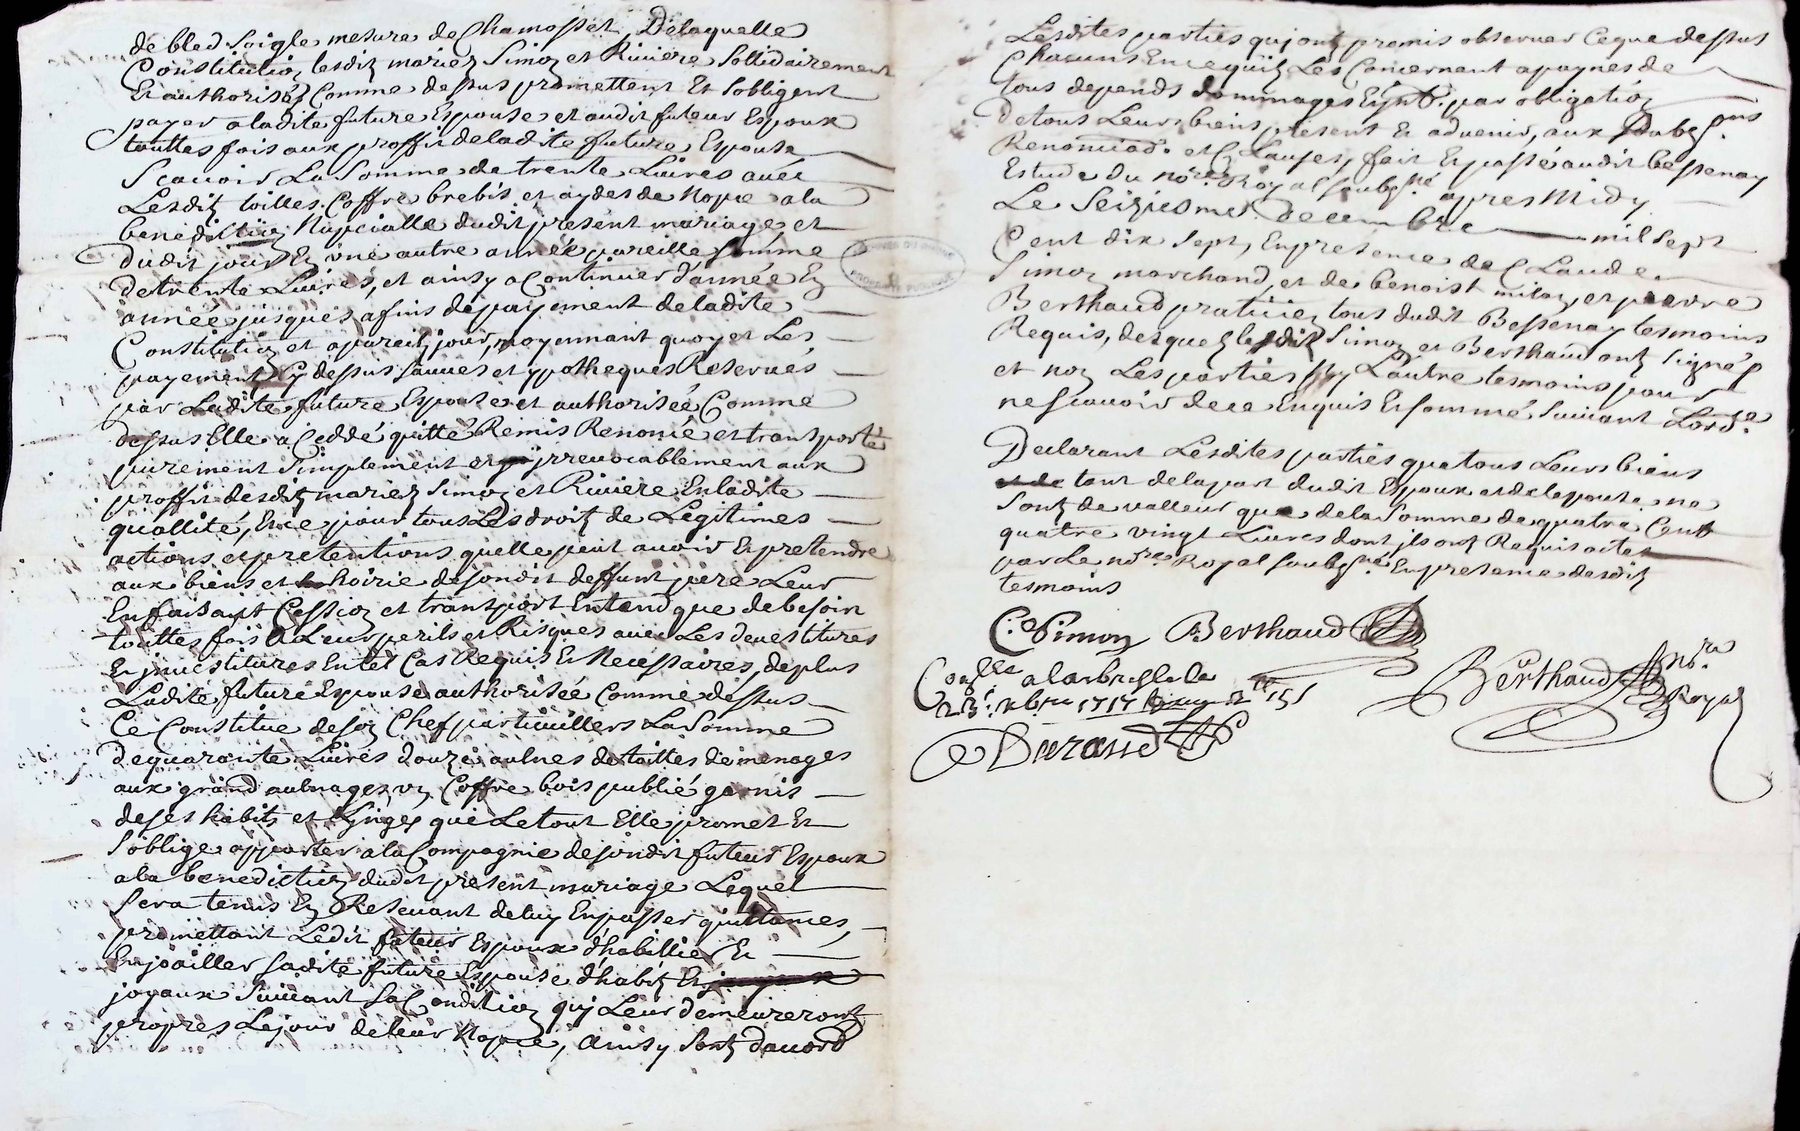 de bled Soigle mesure de Chamosset, Delaquelle
Constitution lesditz mariez Simon et Riviere Sollidairement
Et authorisés Comme dessus promettent Et Sobligent
payer a ladite future Espouse et audit futeur Espoux
touttes fois aux proffit deladite future Espouse
Scavoir La Somme de trente Livres avec
Lesditz toilles Coffre brebis et aydes de Nopce a la
benediction Nupcialle dudit present mariage et
Dudit jour En une autre année pareille somme
de trente Livres, et ainsy a Continuer d'année En
année jusques afins de payement deladite
Constitution et a pareil jour, moyennant quoy et Les
payement Cy dessus sauves et ypotheques Reservés
par Ladite future Espouse et authorisée Comme
dessus Elle a Ceddé quitté Remis Renoncé et transporté
purement Simplement et jrrevocablement aux
proffit desditz mariez Simon et Riviere En ladite
quallité, Et ce pour tous Les droitz de Legitimes
actions et pretentions quelle peut avoir Et pretendre
aux biens et hoirie desondit deffunt pere Leur
En faisant Cession et transport Entend que de besoin
touttes fois A Leur perils et Risques avec Les devestitures
Et jnvestitures En tel Cas Requis Et Necessaires, de plus
Ladite future Espouse authorisée Comme dessus
Ce Constitue de son Chef particuillers La Somme
De quarante Livres douze aulnes de toilles de menages
aux grand aulnages, un Coffre bois publié garnis
de ses habits et Lynges que Le tout Elle promet Et
Soblige apporter a la Compagnie desondit futeur Espoux
a la benediction dudit present mariage Lequel
Sera tenus En Resevant de luy En passer quittances,
promettant Ledit futeur Espoux d'habillier Et
Enjoailler sadite future Espouse d'habitz Et
joyaux Suivant Sa Condition quj Leur demeureront
propres Lejour de leur Nopce, ainsy Sont d'accord
Lesdites parties quj ont promis observer Ceque dessus
Chacuns En ce quils Les Concernent a paynes de
tous depends dommages par obligation
De tous Leurs biens present Et advenir, aux
Renonciaons et Clauses, fait Et passé audit bessenay
Estude du nore Royal soubsné apres Midy
Le Seiziesme decembre mil Sept
Cent dix Sept, En presence de Claude
Simon marchand, et de benoist milan, et pierre
Berthaud praticien tous dudit Bessenay tesmoins
Requis, desquels lesditz Simon et Berthaud ont Signés
et non Les parties ny Lautre tesmoins pour
ne scavoir de ce Enquis Et sommé Suivant Lorde.
Declarant Lesdites parties que tous Leurs biens
tant de la part dudit Espoux et delepouse ne
Sont de valleur que de la Somme de quatre Cent
quatre vingt Livres dont jls ont Requis actes
par Le nore Royal soubsné En presence desditz
tesmoins
C. Simon Berthaud
Berthaud nre
Royal
Conllé a larbresle le
23e xbre 1717
Durand